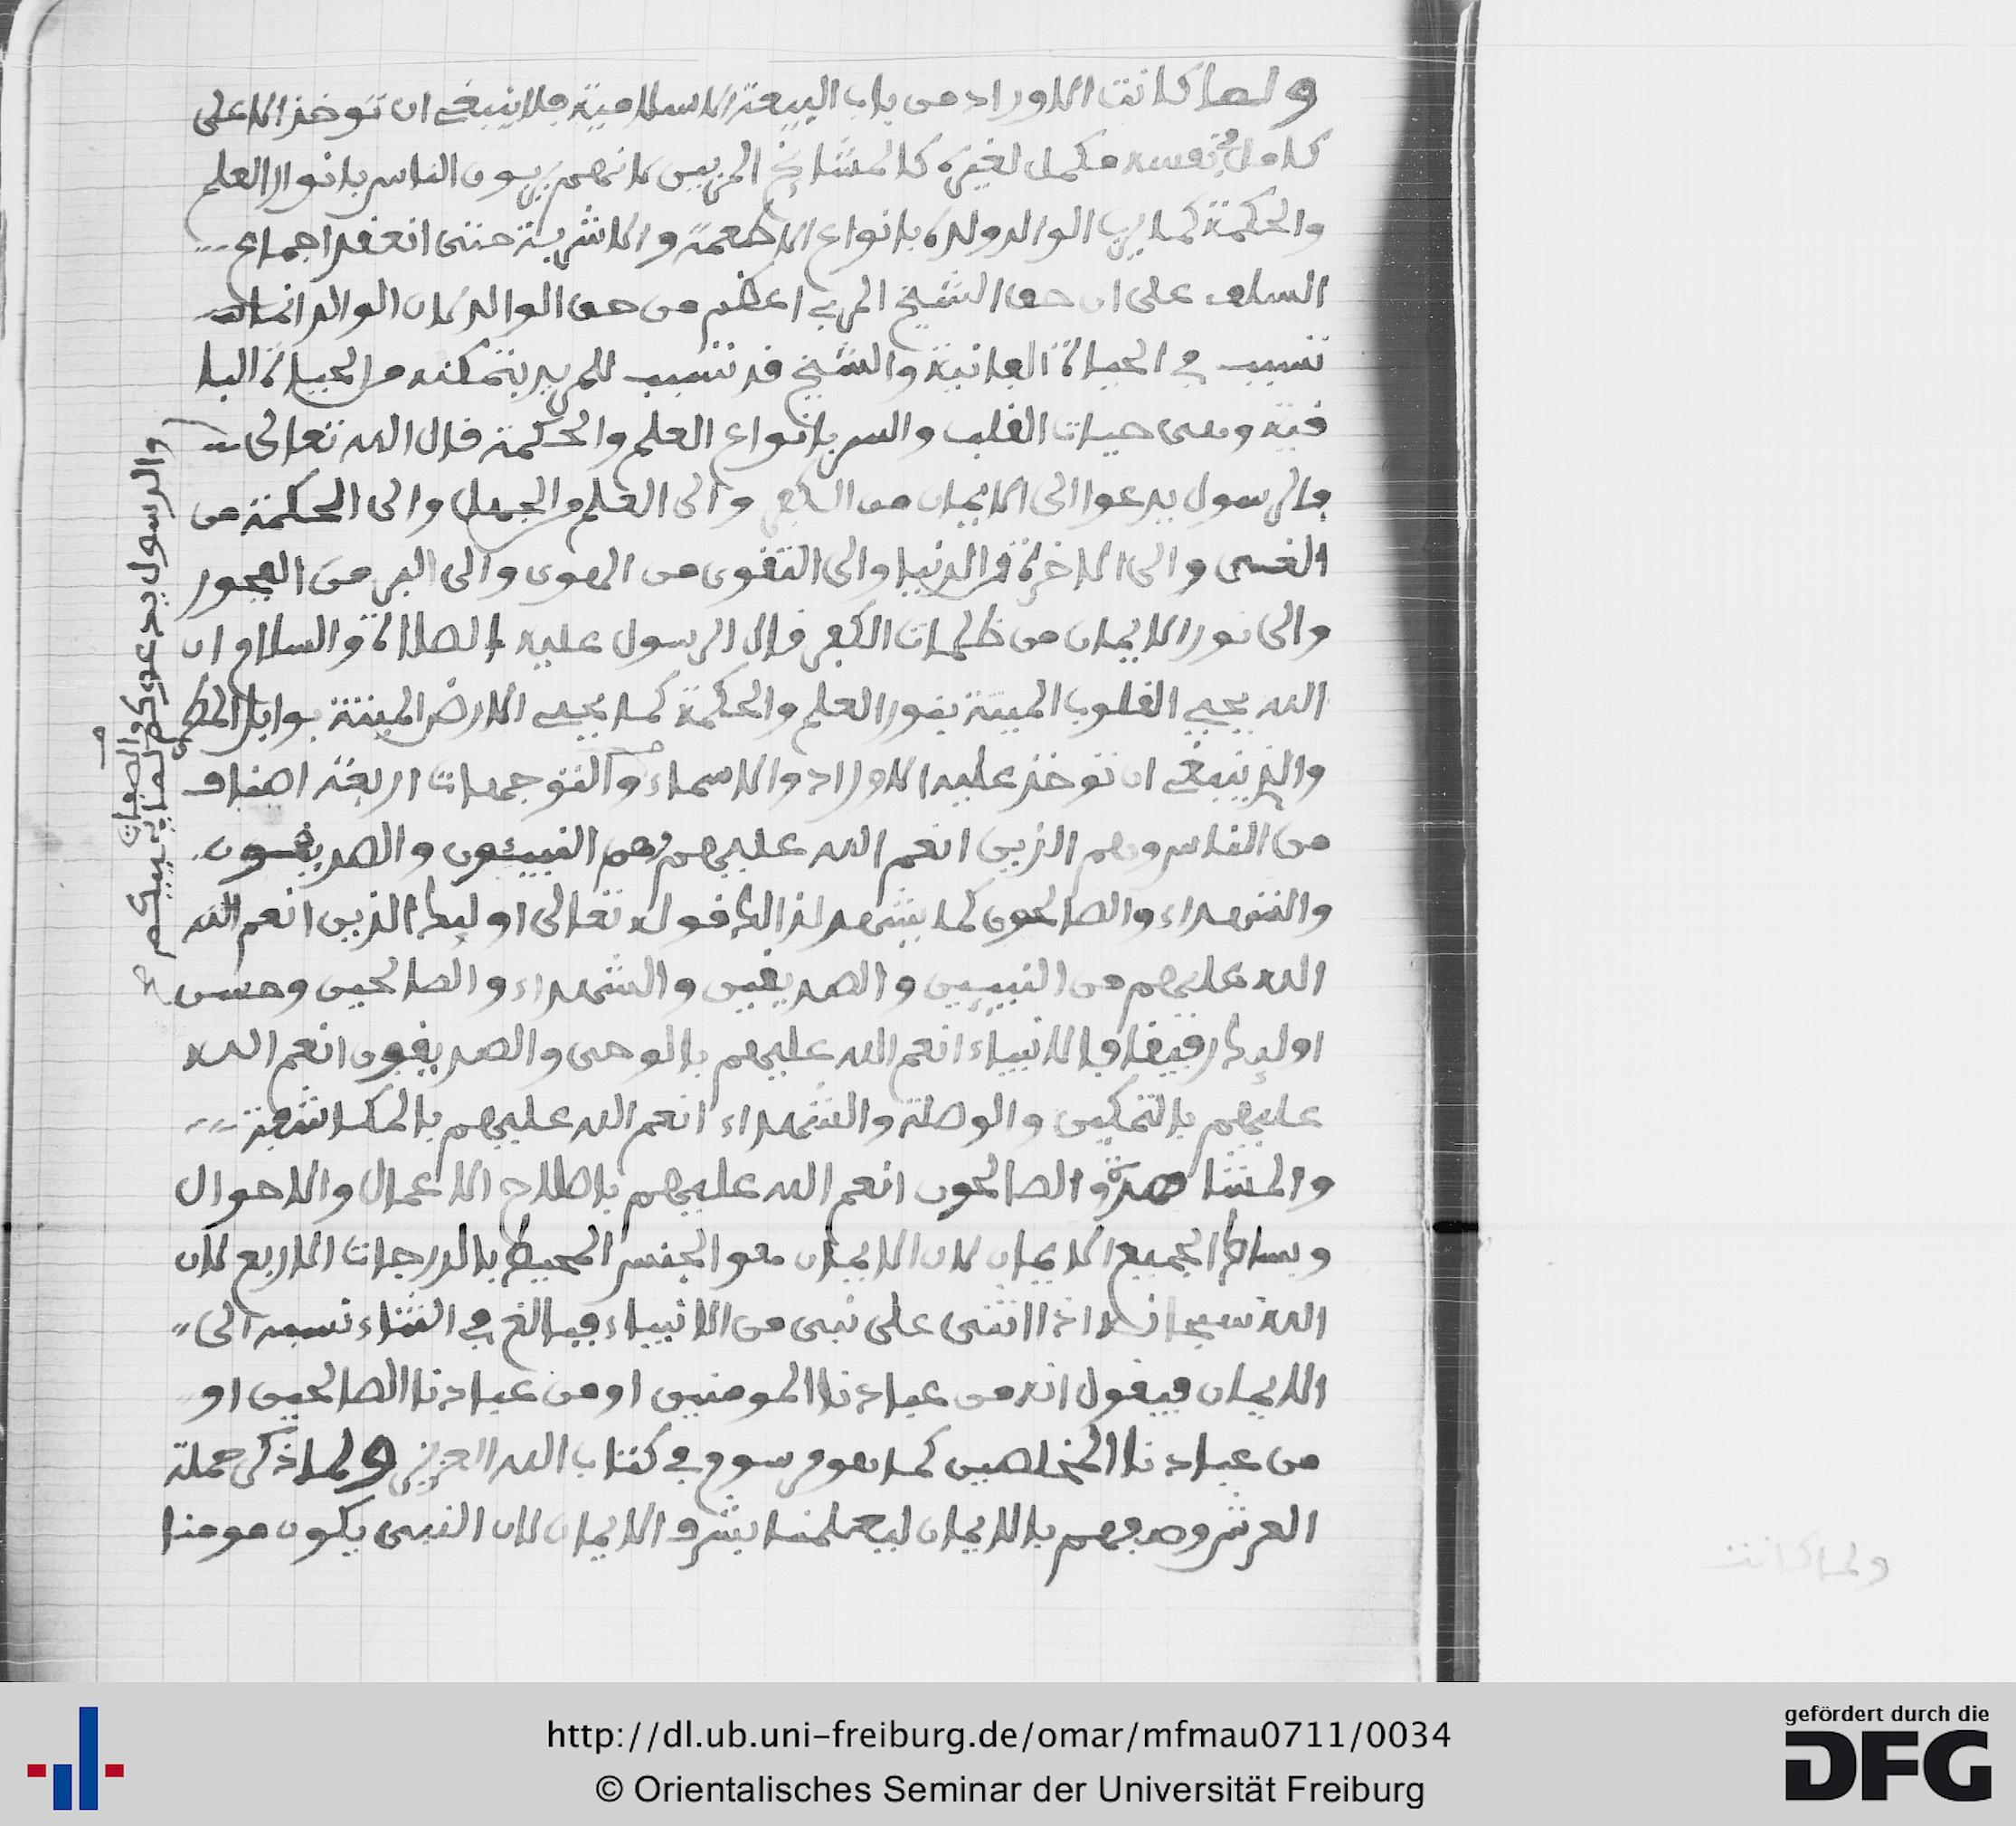 ولما كانت الاوراد من باب البيعة الاسلامية فلا ينبغي ان توخذ الا على
كامل في نفسه مكمل لغيره كالمشايخ المربين لانهم يربون الناس بانوار العلم
والحكمة كما يربي الوالد ولده بانواع الاطعمة والاشربة حتى انعقد اجماع
السلف على ان حق الشيخ المربي اعظم من حق الوالد لان الوالد انما
تسبب في الحياة الفانية والشيخ قد تسبب للمريد بتمكنه من الحياة البا
قية وهي حيات القلب والسر بانواع العلم والحكمة قال الله تعالى
والرسول يدعوكم لما يحييكم
فالرسول يدعوا الى الايمان من الكفر والى العلم من الجهل والى الحكمة من
والى الاخرة من الدنيا والى التقوى من الهوى والى البر من الفجور
والى نور الايمان من ظلمات الكفر قال الرسول عليه الصلاة والسلام ان
الله يحيي القلوب الميتة بنور العلم والحكمة كما يحيي الارض الميتة بوابل المطر
والذي ينبغي ان توخذ عليه الاوراد والاسماء والتوجهات اربعة اصناف
والصفات صح
من الناس وهم الذين انعم الله عليهم وهم النبيئون والصديقون
والشهداء والصالحون كما يشهد لذالك قوله تعالى اوليك الذين انعم الله
الله عليهم من النبيين والصديقين والشهداء والصالحين وحسن
اوليك رفيقا فالانبياء انعم الله عليهم بالوحي والصديقون انعم الله
عليهم بالتمكين والوصلة والشهداء انعم الله عليهم بالمكاشفة
والمشاهدة والصالحون انعم الله عليهم باصلاح الاعمال والاحوال
وبساط الجميع الايمان لان الايمان هو الجنس المحيط بالدرجات الاربع لان
الله سبحانه اذا اثنى على نبي من الانبياء فبالغ في الثناء نسبه الى
الايمان فيقول انه من عبادنا المومنين او من عبادنا الصالحين او
من عبادنا المخلصين كما هو مرسوم في كتاب الله العزيز ولما ذكر حملة
العرش وصفهم بالايمان ليعلمنا بشرف الايمان لان النبي يكون مومنا
ولما كانت
http://dl.ub.uni-freiburg.de/omar/mfmau0711/0034
© Orientalisches Seminar der Universität Freiburg
gefördert durch die
DFG